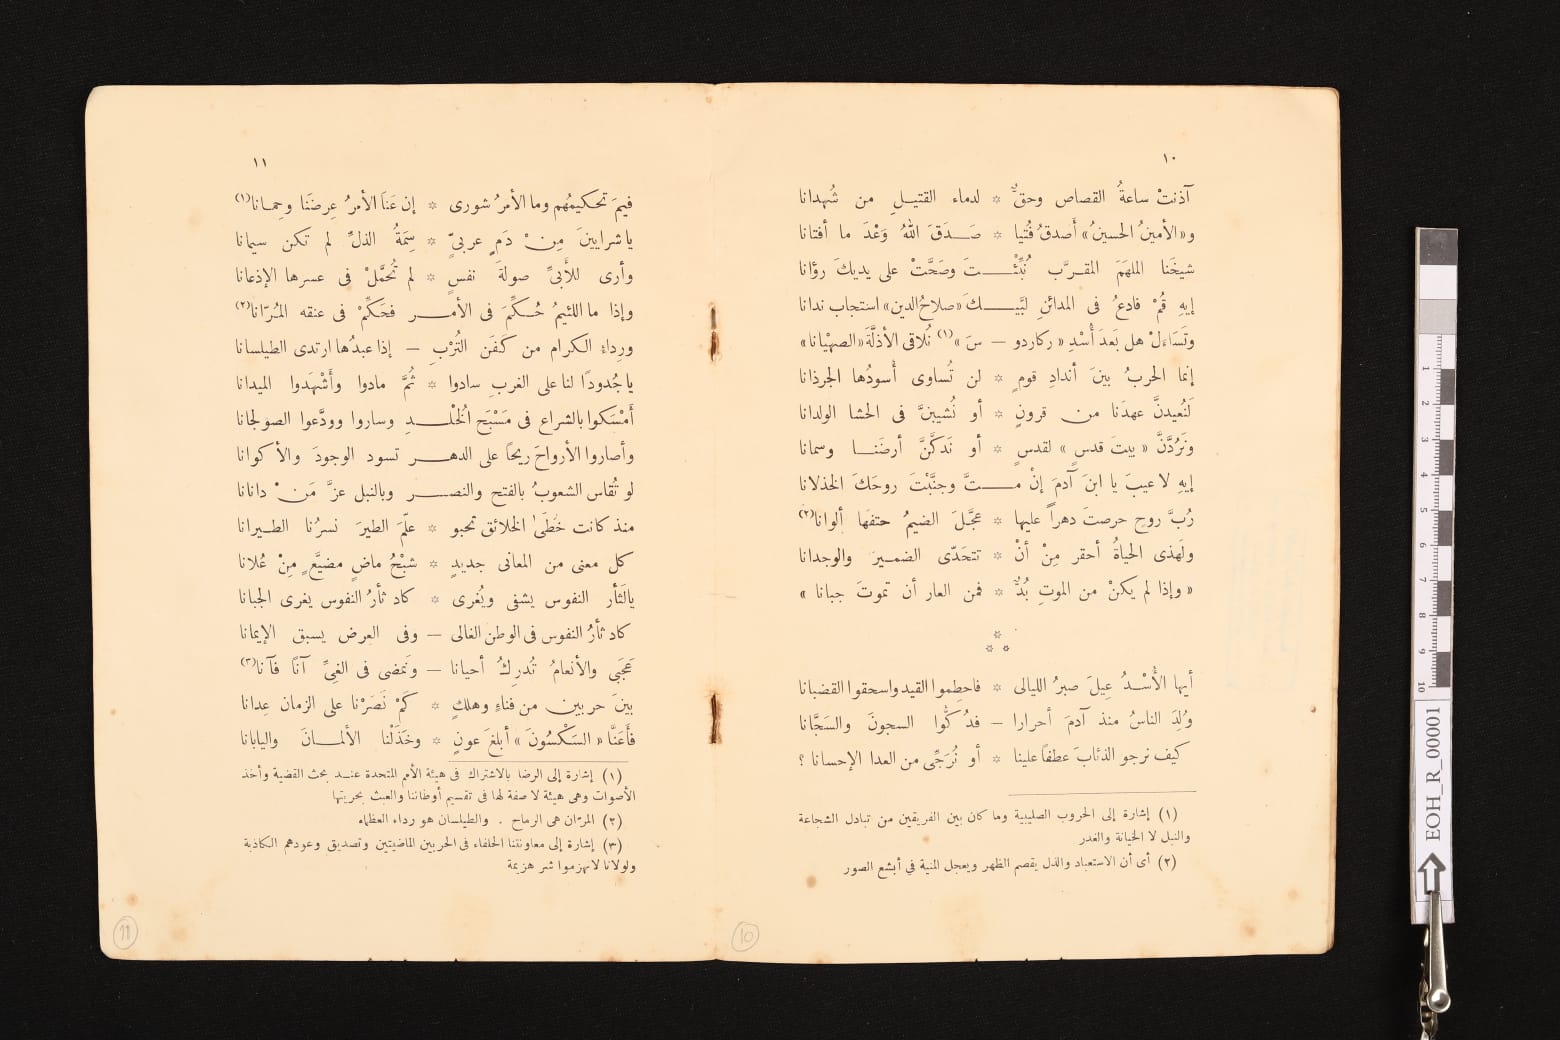 ١٠
آذنتْ ساعةُ القصاص وحقٌّ * لدماء القتيـل من شُهدانا
و«الأمينُ الحسينُ» أَصدقُ فُتيا * صَـدَقَ اللهُ وَعْدَ ما أفتانا
شيخَنا الملهَمَ المقـرَّب نُبِّئْـتَ وصَحَّتْ على يديكَ رؤانا
إيهِ قُمْ فادعُ فى المدائنِ لبَّيـكَ «صلاحُ الدين» استجاب ندانا
وتَسَاءَلْ هل بَعدَ أُسْدِ « ركاردو – سَ »(١) نُلاقى الأذلَّةَ «الصهْيانا»
إنما الحربُ بينَ أندادِ قومٍ * لن تُساوى أُسودُها الجرذانا
لَنُعيدنَّ عهدَنا من قرونٍ * أو نُشيبنَّ فى الحشا الولدانا
ونَرُدَّنَّ « بيتَ قدسٍ » لقدسٍ * أو نَدكَّنَّ أرضَنـا وسمانا
إيهِ لا عيبَ يا ابنَ آدمَ إنْ مـتَّ وجنَّبْتَ روحَكَ الخذلانا
رُبَّ روحٍ حرصتَ دهراً عليها * عجَّلَ الضيمُ حتفَها ألوانا(٢)
ولَهذى الحياةُ أحقر مِنْ أنْ * تتحَدّى الضمـيرَ والوجدانا
« وإذا لم يكنْ من الموتِ بُدٌّ * فمن العار أن تموتَ جبانا »
* * *
أيها الأُسْـدُ عِيلَ صبرُ الليالى * فاحطِموا القيد واسحقوا القضبانا
وُلِدَ الناسُ منذ آدمَ أحرارا – فدُكُّوا السجونَ والسَجَّانا
كيف نرجو الذئابَ عطفاً علينا * أو نُرَجِّى من العدا الإحسانا ؟
(١) إشارة إلى الحروب الصليبية وما كان بين الفريقين من تبادل الشجاعة
والنبل لا الخيانة والغدر
(٢) أى أن الاستعباد والذل يقصم الظهر ويعجل المنية في أبشع الصور
10
١١
فيمَ تحكيمُهم وما الأمرُ شورى * إن عَنَا الأمرُ عِرضَنا وحِمانا(١)
يا شرايينَ مِنْ دَمٍ عربىٍّ * سِمَةُ الذلِّ لم تكن سيمانا
وأرى للأَبىِّ صولةَ نفسٍ * لم تُحمَّلْ فى عسرها الإذعانا
وإذا ما اللئيمُ حُـكِّمَ فى الأمـر فحَكِّمْ فى عنقه المُرّانا(٢)
ورِداءِ الكرام من كَفَن التُرْبِ – إذا عبدُها ارتدى الطيلسانا
يا جُدودًا لنا على الغربِ سادوا * ثُمَّ مادوا وأَشْهَدوا الميدانا
أَمْسَكوا بالشراع فى مَسْبَح الخُلْـدِ وساروا وودَّعوا الصولجانا
وأصاروا الأرواحَ ريحًا على الدهـر تسود الوجودَ والأكوانا
لو تُقاس الشعوبُ بالفتح والنصـر وبالنبل عزَّ مَنْ دانانا
منذ كانت خُطَىٰ الخلائق تحبو * علّمَ الطيرَ نسرُنا الطـيرانا
كل معنى من المعانى جديدٍ * شبْحُ ماضٍ مضيَّعٍ مِنْ عُلانا
يالَثأر النفوس يشفى ويُغرى * كاد ثأرُ النفوس يغرى الجبانا
كاد ثأرُ النفوس فى الوطن الغالى – وفى العرض يسبق الإيمانا
عَجَبى والأنعامُ تُدرِكُ أحيانا – ونَمضى فى الغىِّ آنًا فآنا(٣)
بينَ حربين من فناءِ وهلكٍ * كَمْ نَصَرْنا على الزمان عِدانا
فأَعَنَّا « السَكْسُونَ » أبلغَ عونٍ * وخَذَلْنا الألمـانَ واليابانا
(١) إشارة إلى الرضا بالاشتراك فى هيئة الأمم المتحدة عنـد بحث القضية وأخذ
الأصوات وهى هيئة لا صفة لها فى تقسيم أوطاننا والعبث بحريتها
(٢) المرّان هى الرماح . والطيلسان هو رداء العظماء
(٣) إشارة إلى معاونتنا الحلفاء فى الحربين الماضيتين وتصديق وعودهم الكاذبة
ولولانا لانهزموا شر هزيمة
11
1
2
3
4
5
6
7
8
9
10
EOH_R_00001